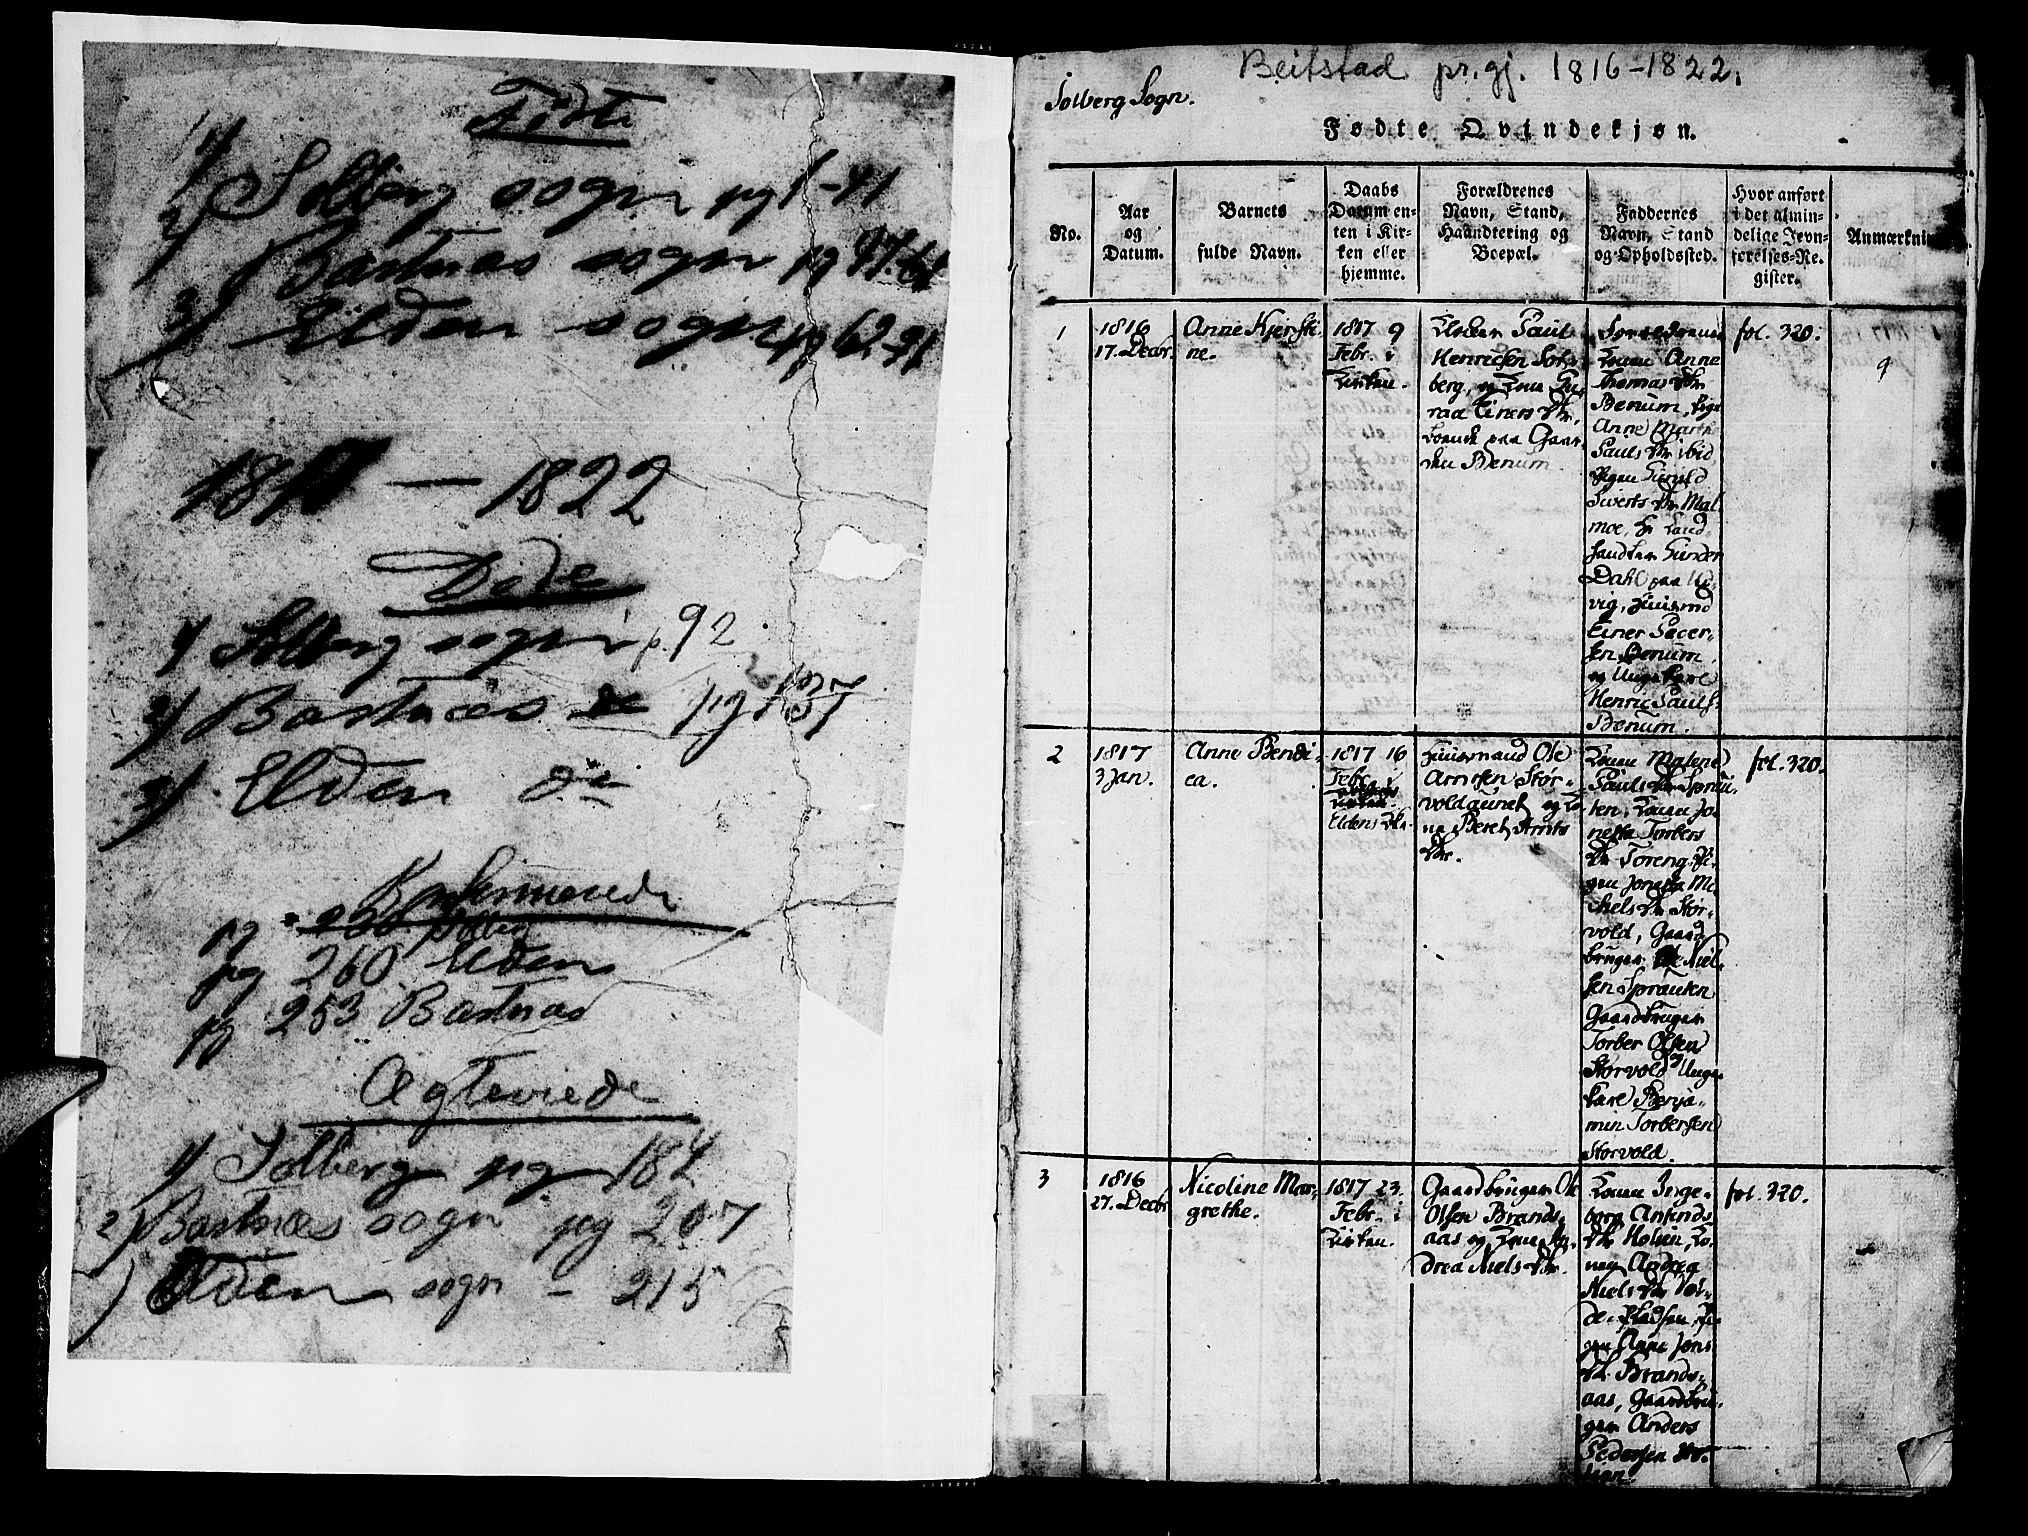 Fødte
1) Solberg sogn pg 1-41
2) Bartnæs sogn pg
3) Elden sogn pg 62-91
1817 — 1822
Døde
1) Solberg sogn p. 92
2) Bartnæs do pg 137
3) Elden do
Konfirmerede
pg 230 Solberg
pg 260 Elden
pg 253 Bartnæs
Ægteviede
1) Solberg pg 184
2) Bartnæs sogn pg 207
) Elden sogn - 215
Beitstad pr.gj. 1816-1822.
Solberg Sogn.
Fødte Qvindekjøn.
No.
Aar
og
Datum.
Barnets
fulde Navn.
Daabs
Datum en-
ten i Kir-
ken eller
hjemme.
Forældrenes
Navn, Stand,
Haandtering og
Boepæl.
Faddernes
Navn, Stand
og Opholdssted.
Hvor anført
i det almin-
delige Jevn-
førelses-Re-
gister.
Anmærkni
1
1816
17. Decbr.
Anne Kjersti-
ne.
1817 9
Febr. i
Kirken.
Klokker Paul
Henricsen Sol-
berg, og Kone Gu-
roe Einers Dtr.
boende paa Gaar-
den Benum.
Kone Anne
Thomas Dtr
Benum, Pige
Anne Marth
Pauls Dtr ibid
Pigen Gunild
Siverts Dtr Mal
moe, Hr Land
handler Günder
Dahl paa
vig, Huusmd
Einer Peder-
sen Benum,
og Ungekarl
Henric Pauls:
Benum.
fol. 320.
2
1817
3 Jan.
Anne Bendi-
ca.
1817 16
Febr. i
Eldens Kir.
Huusmand Ole
Arntsen Stor-
voldaunet og Ko-
ne Beret Arnts
Dtr.
Konen Malene
Pauls Dtr Sprau
ten, Konen Jo
netta Torbers
Dtr Foreng. Pi-
gen Jonetta Mi-
chels Dtr Stor-
vold, Gaard
bruger Ole Niel-
sen Sprauten
Gaardbruger
Torber Olsen
Storvold og Unge
karl Benja-
min Torbersen
Storvold.
fol. 320.
3
1816
27. Decbr
Nicoline Mar-
grethe.
1817 23.
Febr. i
Kirken.
Gaardbruger Ole
Olsen Brands-
aas og Kone An-
drea Niels Dtr.
Konen Inge-
borg Anfinds
Dtr Holien, Ko-
nen Andrea
Niels Dtr
de-Pladsen, Pi-
gen Anne Jons
Dtr. Brands-
aas, Gaardbru-
ger Anders
Pedersen Ho-
lien.
fol. 320.